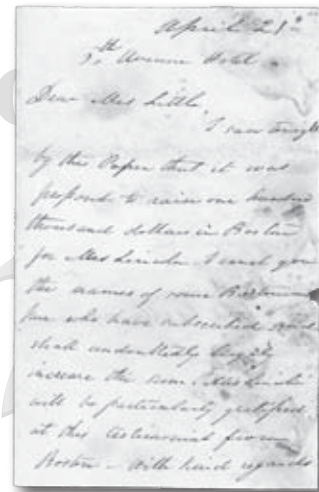 April 21st
5th Avenue Hotel
Dear Mrs Little,
I saw tonight
by the Paper that it was
proposed to raise one hundred
thousand dollars in Boston
for Mrs Lincoln. I send you
the names of some
who have subscribed and
shall undoubtedly largely
increase the sum. Mrs Lincoln
will be particularly gratified
at this testimonial from
Boston - With kind regards